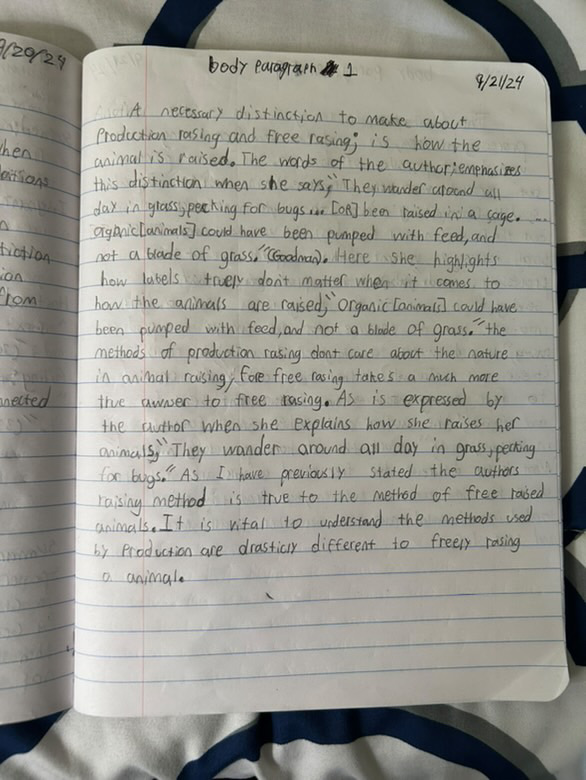 9/20/24
hen
ions
n
tiction
ion
from
nected
body paragraph 1
9/21/24
A necessary distinction to make about
Production rasing and free rasing; is how the
animal is raised. The words of the author; emphasizes
this distinction when she says," They wander around all
day in grass, pecking for bugs... [OR] been raised in a cage. ...
organic [animals] could have been pumped with feed, and
not a blade of grass."(Goodman). Here she highlights
how labels truely dont matter when it comes to
how the animals are raised," Organic [animals] could have
been pumped with feed, and not a blade of grass." the
methods of production rasing dont care about the nature
in animal raising; Fore free rasing takes a much more
true awnser to free rasing. As is expressed by
the author when she explains how she raises her
animals," They wander around all day in grass, pecking
for bugs." As I have previously stated the authors
raising method is true to the method of free raised
animals. It is vital to understand the methods used
by Production are drasticly different to freely rasing
a animal.